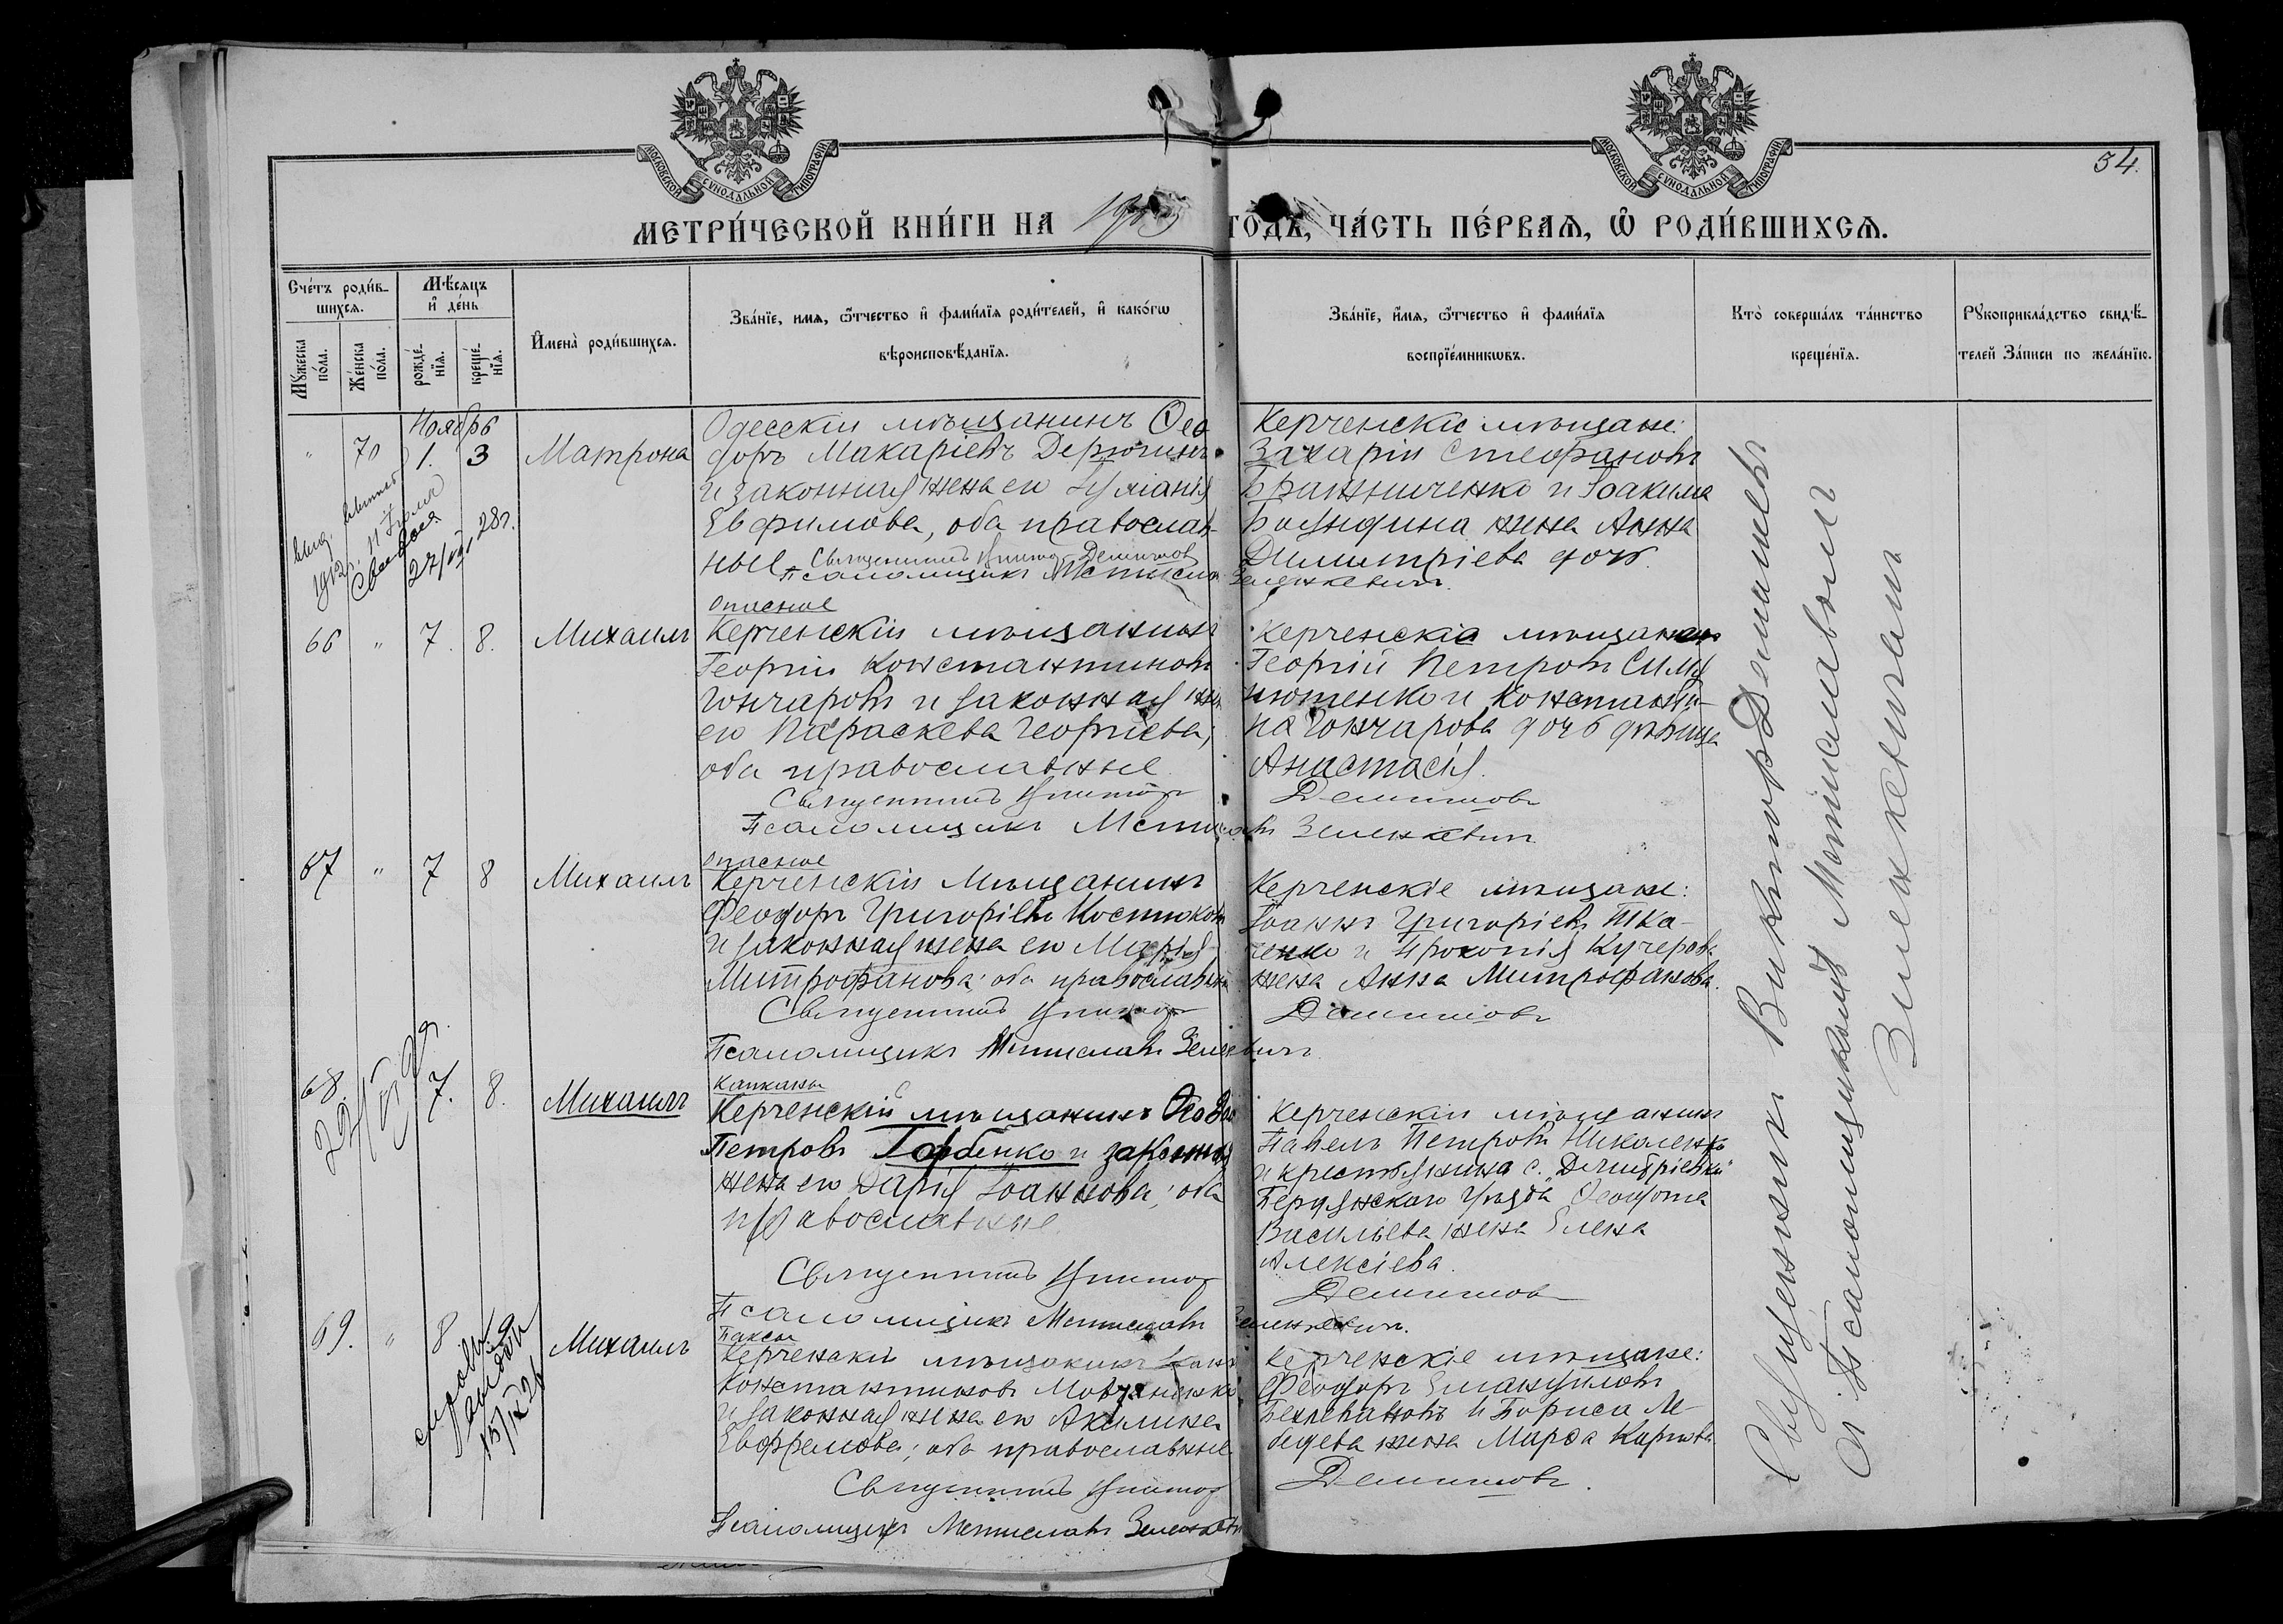 МОСКОВСКОЙ СУНОДАЛЬНОЙ ТИПОГРАФІИ
МОСКОВСКОЙ СУНОДАЛЬНОЙ ТИПОГРАФІИ
54.
МЕТРИ́ЧЕСКОЙ КНИ́ГИ НА
ГОДЪ, ЧА́СТЬ ПЕ́РВАЯ, Ѡ РОДИ́ВШИХСЯ.
Сче́тъ роди́в-
шихся.
Мѣ́сяцъ
и де́нь
Мꙋжеска
по́ла.
Же́нска
по́ла.
рожде́-
нїя.
креще́-
нїя.
Имена̀ роди́вшихся.
Зва́нїе, имя, ѻтчество и фами́лїя роди́телей, и како́гѡ
вѣроисповѣ́данїя.
Зва́нїе, и́мя, ѻтчество и фами́лїя
воспрїе́мникѡвъ.
Кто̀ соверша́лъ та́инство
креще́нїя.
Рꙋкоприкла́дство свидѣ́-
телей За́писи по жела́нїю.
Ноябрь
" 70 1. 3 Матрона
Одесскій мѣщанинъ Ѳео
доръ Макаріевъ Дерюгинъ
и законная жена его Іуліанія
Евфимова, оба православ-
ные Священникъ Викторъ Демишовъ
Псаломщикъ Мстиславъ Зеленкевичъ
Керченскіе мѣщане:
Захарій Стефановъ
Бражниченко и Іоакима
жена Анна
Димитріева дочь.
1912 г. 11 Іюля
28 г.
66 " 7. 8. Михаилъ
Опасное
Керченскій мѣщанинъ
Георгій Константиновъ
Гончаровъ и законная жена
его Параскева Георгіева;
оба православные
Священникъ Викторъ Демишовъ
Псаломщикъ Мстиславъ Зеленкевичъ
Георгій Петровъ Сим
ютенко и Константи-
на Гончарова дочь дѣвица
Анастасія.
67 " 7 8 Михаилъ
Опасное
Керченскій мѣщанинъ
Феодоръ Григорьевъ Костюковъ
и законная жена его Марія
Митрофанова; оба православные
Священникъ Викторъ Демишовъ
Псаломщикъ Мстиславъ Зеленкевичъ
Керченскіе мѣщане:
Іоаннъ Григоріевъ Тка-
ченко и Прокопія Кучерова
жена Анна Митрофанова.
68. 7. 8. Михаилъ
Капканы
Керченскій мѣщанинъ Ѳеодоръ
Петровъ Горбенко и законная
жена его Дарія Іоаннова; оба
православные.
Священникъ Викторъ Демишовъ
Псаломщикъ Мстиславъ Зеленкевичъ.
Керченскій мѣщанинъ
Павелъ Петровъ Николенко
и крестьянина с. "Дмитріевки"
Бердянскаго уѣзда Ѳеодота
Васильева жена Елена
Алексіева.
69. " 8 Михаилъ
15/IX 26
Керченскій мѣщанинъ
Константиновъ Мовчаненко
и законная жена его Акилина
Евфремова; оба православные
Священникъ Викторъ Демишовъ.
Псаломщикъ Мстиславъ Зеленкевичъ
Керченскіе мѣщане:
Феодоръ Емануиловъ
и Бориса Ле-
бедева жена Марѳа Карпова
Священникъ Викторъ Демишевъ
съ Псаломщикомъ Мстиславомъ
Зеленкевичемъ